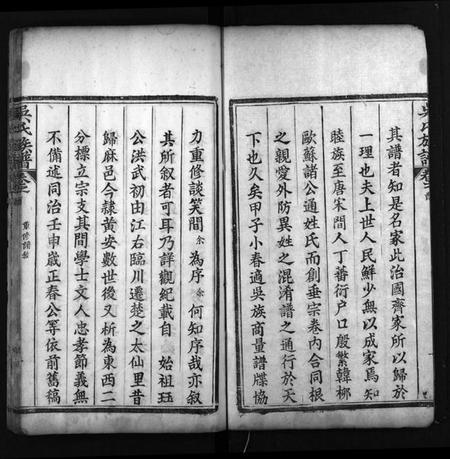 其譜者知是名家此治國齊家所以歸於
一理也夫上世人民鮮少無以成家焉知
睦族至唐宋間人丁蕃衍户口殷繁韓柳
歐蘇諸公通姓氏而創垂宗卷內合同根
之親愛外防異姓之混淆譜之通行於天
下也久矣甲子小春適吳族商量譜牒協
力重修談笑間余為序余何知序哉亦叙
其所叙者可耳乃詳觀紀載自 始祖珏
公洪武初由江右臨川遷楚之太仙里昔
歸麻邑今隸黄安數世後又析為東西二
分標立宗支其間學士文人忠孝節義無
不備述同治壬申歲正春公等依前舊稿
吳氏族譜 卷首
重修譜叙